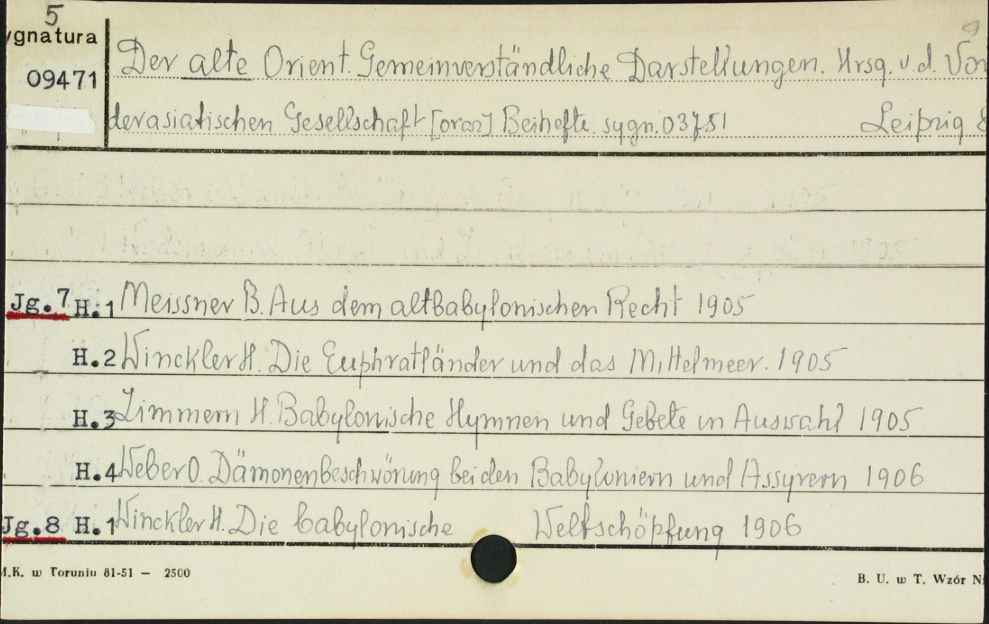 5
ygnatura
09471
Der alte Orient. Gemeinverständliche Darstellungen. Hrsg. v. d. Vor
derasiatischen Gesellschaft [oraz] Beihefte. sygn. 03751 Leipzig
Jg.7 H.1 Meissner B. Aus dem altbabylonischen Recht 1905
H.2 Winckler H. Die Euphratländer und das Mittelmeer. 1905
H.3 Zimmern H. Babylonische Hymnen und Gebete in Auswahl 1905
H.4 Weber O. Dämonenbeschwörung bei den Babyloniern und Assyrern 1906
Jg.8 H.1 Winckler H. Die babylonische Weltschöpfung 1906
M.K. w Toruniu 81-51 — 2500
B. U. w T. Wzór N